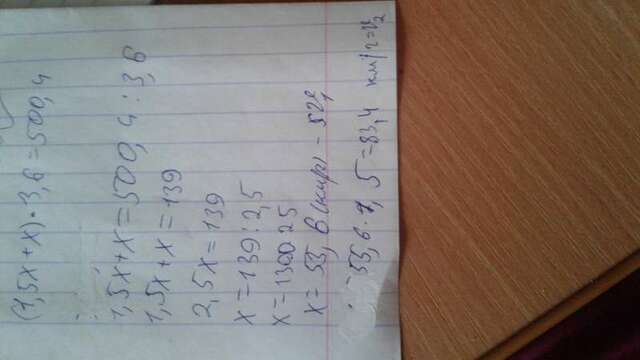 (1,5x+x)·3,6=500,4
1,5x+x=500,4:3,6
1,5x+x=139
2,5x=139
x=139:2,5
x=1390:25
x=55,6(км/г) - v₁
55,6·1,5=83,4 км/г=v₂